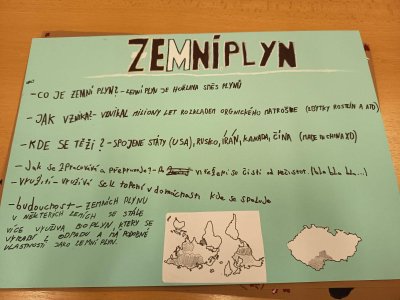 ZEMNÍ PLYN
-CO JE ZEMNÍ PLYN?- ZEMNÍ PLYN JE HOŘLINA SMĚS PLYNŮ
-JAK VZNIKÁ?- VZNIKAL MILIONY LET ROZKLADEM ORGNICKÉHO MATROŠHE (ZBYTKY ROSTLIN A ATD)
-KDE SE TĚŽÍ? - SPOJENE STÁTY (USA), RUSKO, ÍRÁN, KANADA, ČÍNA (MADE IN CHINA XD)
-Jak se zpracovává a přepravuje?- se čistí od nečistot. (bla bla bla...)
-VYUŽITÍ- VYUŽIVÁ SE K TOPENÍ V domácnostech kde se spaluje
-budoucnost- ZEMNÍCH PLYNŮ
V NĚKTERÝCH ZEMÍCH SE STÁLE
VÍCE VYUŽIVA BIOPLYN, KTERÝ SE
VYRABÍ Z ODPADU A MÁ PODOBNÉ
VLASTNOSTI JAKO ZEMNÍ PLYN.